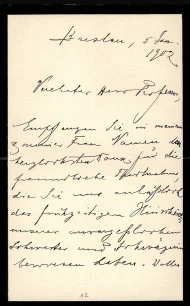 Breslau, 5 Jan.
1902
Verehrter Herr Professor,
Empfangen Sie in meinem
u. meiner Frau Namen den
herzlichsten Dank für die
die Sie uns anläßlich
des frühzeitigen Hinscheidens
unserer unvergeßlichen
Schwester und Schwägerin
bewiesen haben. Wollen
12